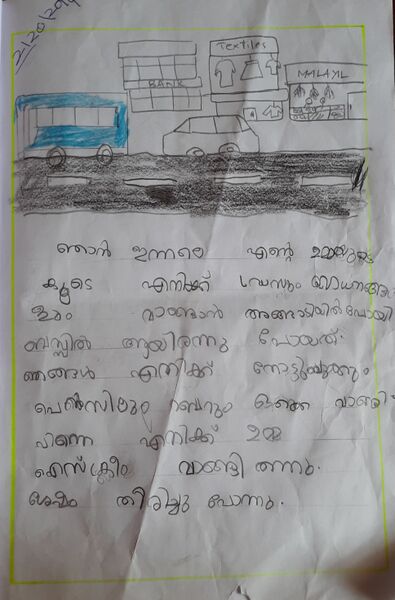 Textiles
BANK
ഞാൻ ഇന്നലെ എന്റെ ഉമ്മയുടെ
കൂടെ എനിക്ക് ഡ്രസും സാധനങ്ങ
ളും വാങ്ങാൻ അങ്ങാടിയിൽ പോയി
ബസ്സിൽ ആയിരുന്നു പോയത്.
ഞങ്ങൾ എനിക്ക് നോട്ടുബുക്കും
പെൻസിലും ഒക്കെ വാങ്ങി.
പിന്നെ എനിക്ക് ഉമ്മ
ഐസ്ക്രീം വാങ്ങി തന്നു.
ശേഷം തിരിച്ചു പോന്നു.